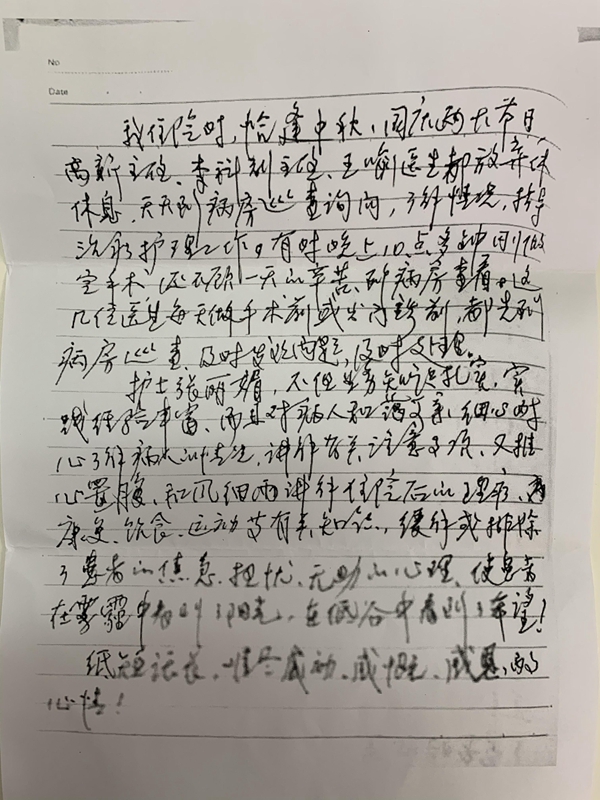 No
Date
我住院时,恰逢中秋、国庆两大节日
高新主任、李科副主任、王 医生都放弃休
休息,天天到病房巡查询问,了解情况,指导
治疗护理工作。有时晚上10点多钟刚做
完手术还不顾一天的辛苦,到病房查看。这
几位医生每天做手术前或出门诊前,都先到
病房巡查,及时发现问题,及时处理。
护士张丽娟,不但业务知识扎实,实
践经验丰富、而且对病人和蔼可亲,细心耐
心了解病人的情况,讲解有关注意事项,又推
心置腹、和风细雨讲解住院后的理疗、
康复、饮食、运动等有关知识,缓解或排除
了患者的焦急、担忧、无助的心理,使患者
在雾霾中看到了阳光,在低谷中看到了希望!
纸短话长,情尽感动、感慨、感恩的
心情!